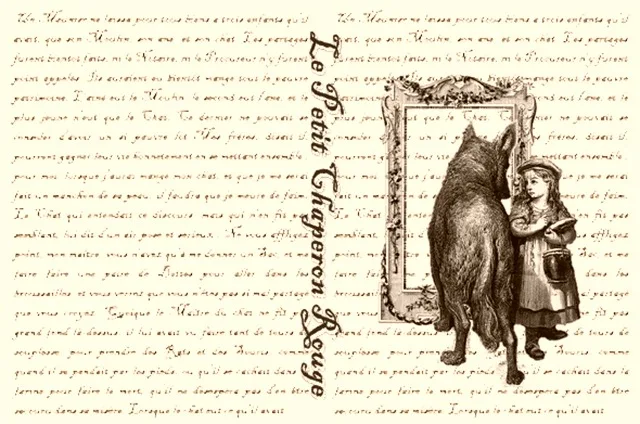 Un Meunier ne laissa pour tous biens a trois enfants qu'il
avait, que son Moulin, son ane, et son chat. Les partages
furent bientot faits, ni le Notaire, ni le Procureur n'y furent
point appeles. Ils auraient eu bientot mange tout le pauvre
patrimoine. L'aine eut le Moulin, le second eut l'ane, et le
plus jeune n'eut que le Chat. Ce dernier ne pouvait se
consoler d'avoir un si pauvre lot. Mes freres, disait il,
pourront gagner leur vie honnetement en se mettant ensemble ;
pour moi, lorsque j'aurai mange mon chat, et que je me serai
fait un manchon de sa peau, il faudra que je meure de faim.
Le Chat qui entendait ce discours, mais qui n'en fit pas
semblant, lui dit d'un air pose et serieux : Ne vous affligez
point, mon maitre, vous n'avez qu'a me donner un Sac, et me
faire faire une paire de Bottes pour aller dans les
broussailles, et vous verrez que vous n'etes pas si mal partage
que vous croyez. Quoique le Maitre du chat ne fit pas
grand fond la dessus, il lui avait vu faire tant de tours de
souplesse, pour prendre des Rats et des Souris, comme
quand il se pendait par les pieds, ou qu'il se cachait dans la
farine pour faire le mort, qu'il ne desespera pas d'en etre
secouru dans sa misere. Lorsque le chat eut ce qu'il avait
Le Petit Chaperon Rouge
Un Meunier ne laissa pour tous biens a trois enfants qu'il
avait, que son Moulin, son ane, et son chat. Les partages
furent bientot faits, ni le Notaire, ni le Procureur n'y furent
point appeles. tout le pauvre
patrimoine. l'ane, et le
plus jeune pouvait se
consoler disait il,
pourront ensemble ;
pour moi, me serai
fait un de faim.
Le Chat fit pas
semblant, affligez
point, et me
faire les
broussailles, partage
que vous fit pas
grand fond de tours de
souplesse, comme
quand il se cachait dans la
farine pour faire le mort, d'en etre
secouru dans sa misere. Lorsque le chat eut ce qu'il avait